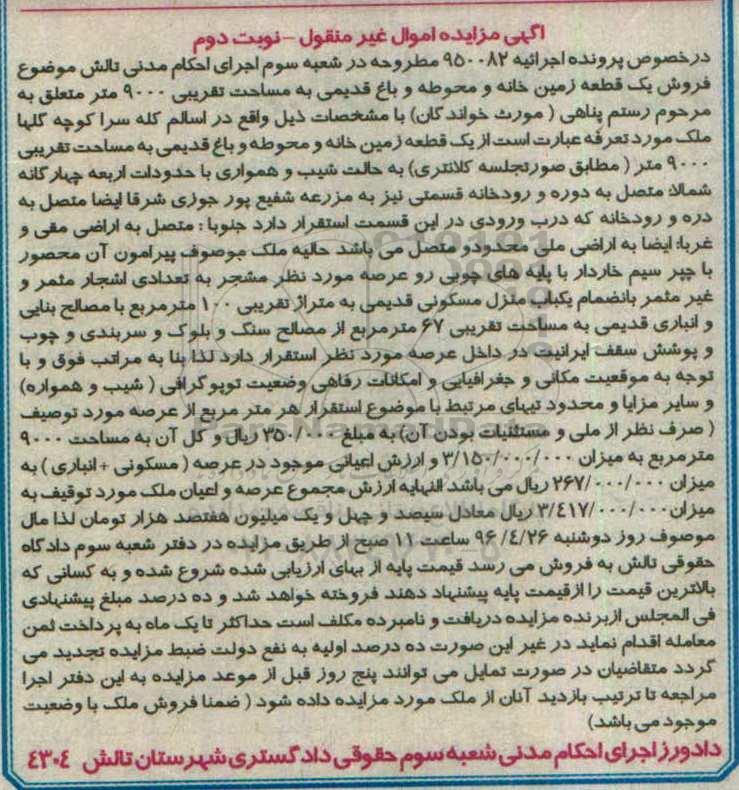 اگهی مزایده اموال غیر منقول - نوبت دوم
درخصوص پرونده اجرائیه ۹۵۰۰۸۲ مطروحه در شعبه سوم اجرای احکام مدنی تالش موضوع
فروش یک قطعه زمین خانه و محوطه و باغ قدیمی به مساحت تقریبی ۹۰۰۰ متر متعلق به
مرحوم رستم پناهی ( مورث خواندگان) با مشخصات ذیل واقع در اسالم کله سرا کوچه گلها
ملک مورد تعرفه عبارت است از یک قطعه زمین خانه و محوطه و باغ قدیمی به مساحت تقریبی
۹۰۰۰ متر ( مطابق صورتجلسه کلانتری) به حالت شیب و همواری با حدودات اربعه چهارگانه
شمالا: متصل به دوره و رودخانه قسمتی نیز به مزرعه شفیع پور جوزی شرقا ایضا متصل به
دره و رودخانه که درب ورودی در این قسمت استقرار دارد جنوبا : متصل به اراضی مقی و
غربا: ایضا به اراضی ملی محدودو متصل می باشد حالیه ملک موصوف پیرامون آن محصور
با چپر سیم خاردار با پایه های چوبی رو عرصه مورد نظر مشجر به تعدادی اشجار مثمر و
غیر مثمر بانضمام یکباب منزل مسکونی قدیمی به متراژ تقریبی ۱۰۰ مترمربع با مصالح بنایی
و انباری قدیمی به مساحت تقریبی ۶۷ مترمربع از مصالح سنگ و بلوک و سربندی و چوب
و پوشش سقف ایرانیت در داخل عرصه مورد نظر استقرار دارد لذا بنا به مراتب فوق و با
توجه به موقعیت مکانی و جغرافیایی و امکانات رفاهی وضعیت توپوگرافی ( شیب و همواره)
و سایر مزایا و محدود تیهای مرتبط با موضوع استقرار هر متر مربع از عرصه مورد توصیف
( صرف نظر از ملی و مستثنیات بودن آن) به مبلغ ۳۵۰/۰۰۰ ریال و کل آن به مساحت ۹۰۰۰
مترمربع به میزان ۳/۱۵۰/۰۰۰/۰۰۰ و ارزش اعیانی موجود در عرصه ( مسکونی + انباری ) به
میزان ۲۶۷/۰۰۰/۰۰۰ ریال می باشد النهایه ارزش مجموع عرصه و اعیان ملک مورد توقیف به
میزان ۳/۴۱۷/۰۰۰/۰۰۰ ریال معادل سیصد و چهل و یک میلیون هفتصد هزار تومان لذا مال
موصوف روز دوشنبه ۹۶/۴/۲۶ ساعت ۱۱ صبح از طریق مزایده در دفتر شعبه سوم دادگاه
حقوقی تالش به فروش می رسد قیمت پایه از بهای ارزیابی شده شروع شده و به کسانی که
بالاترین قیمت را ازقیمت پایه پیشنهاد دهند فروخته خواهد شد و ده درصد مبلغ پیشنهادی
فی المجلس ازبرنده مزایده دریافت و نامبرده مکلف است حداکثر تا یک ماه به پرداخت ثمن
معامله اقدام نماید در غیر این صورت ده درصد اولیه به نفع دولت ضبط مزایده تجدید می
گردد متقاضیان در صورت تمایل می توانند پنج روز قبل از موعد مزایده به این دفتر اجرا
مراجعه تا ترتیب بازدید آنان از ملک مورد مزایده داده شود ( ضمنا فروش ملک با وضعیت
موجود می باشد)
دادورز اجرای احکام مدنی شعبه سوم حقوقی دادگستری شهرستان تالش ۴۳۰۴